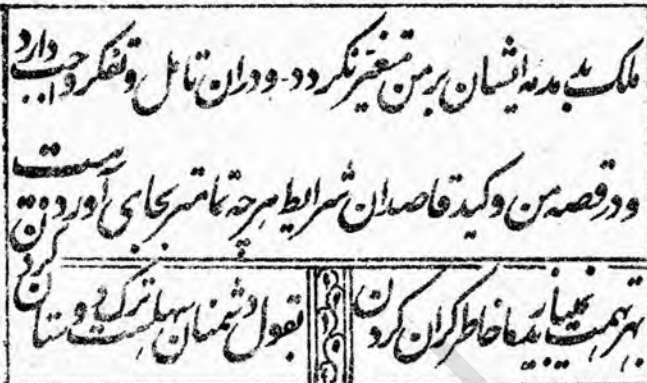 ملک بدمدمه ایشان بر من متغیر نگردد - و دران تامل و تفکر واجب دارد
و در قصه من و کید قاصدان شرایط هرچه تمامتر بجای
بهر تهمت نمیباید بما خاطر گران کردن بقول دشمنان سهلست ترک دوستان کردن